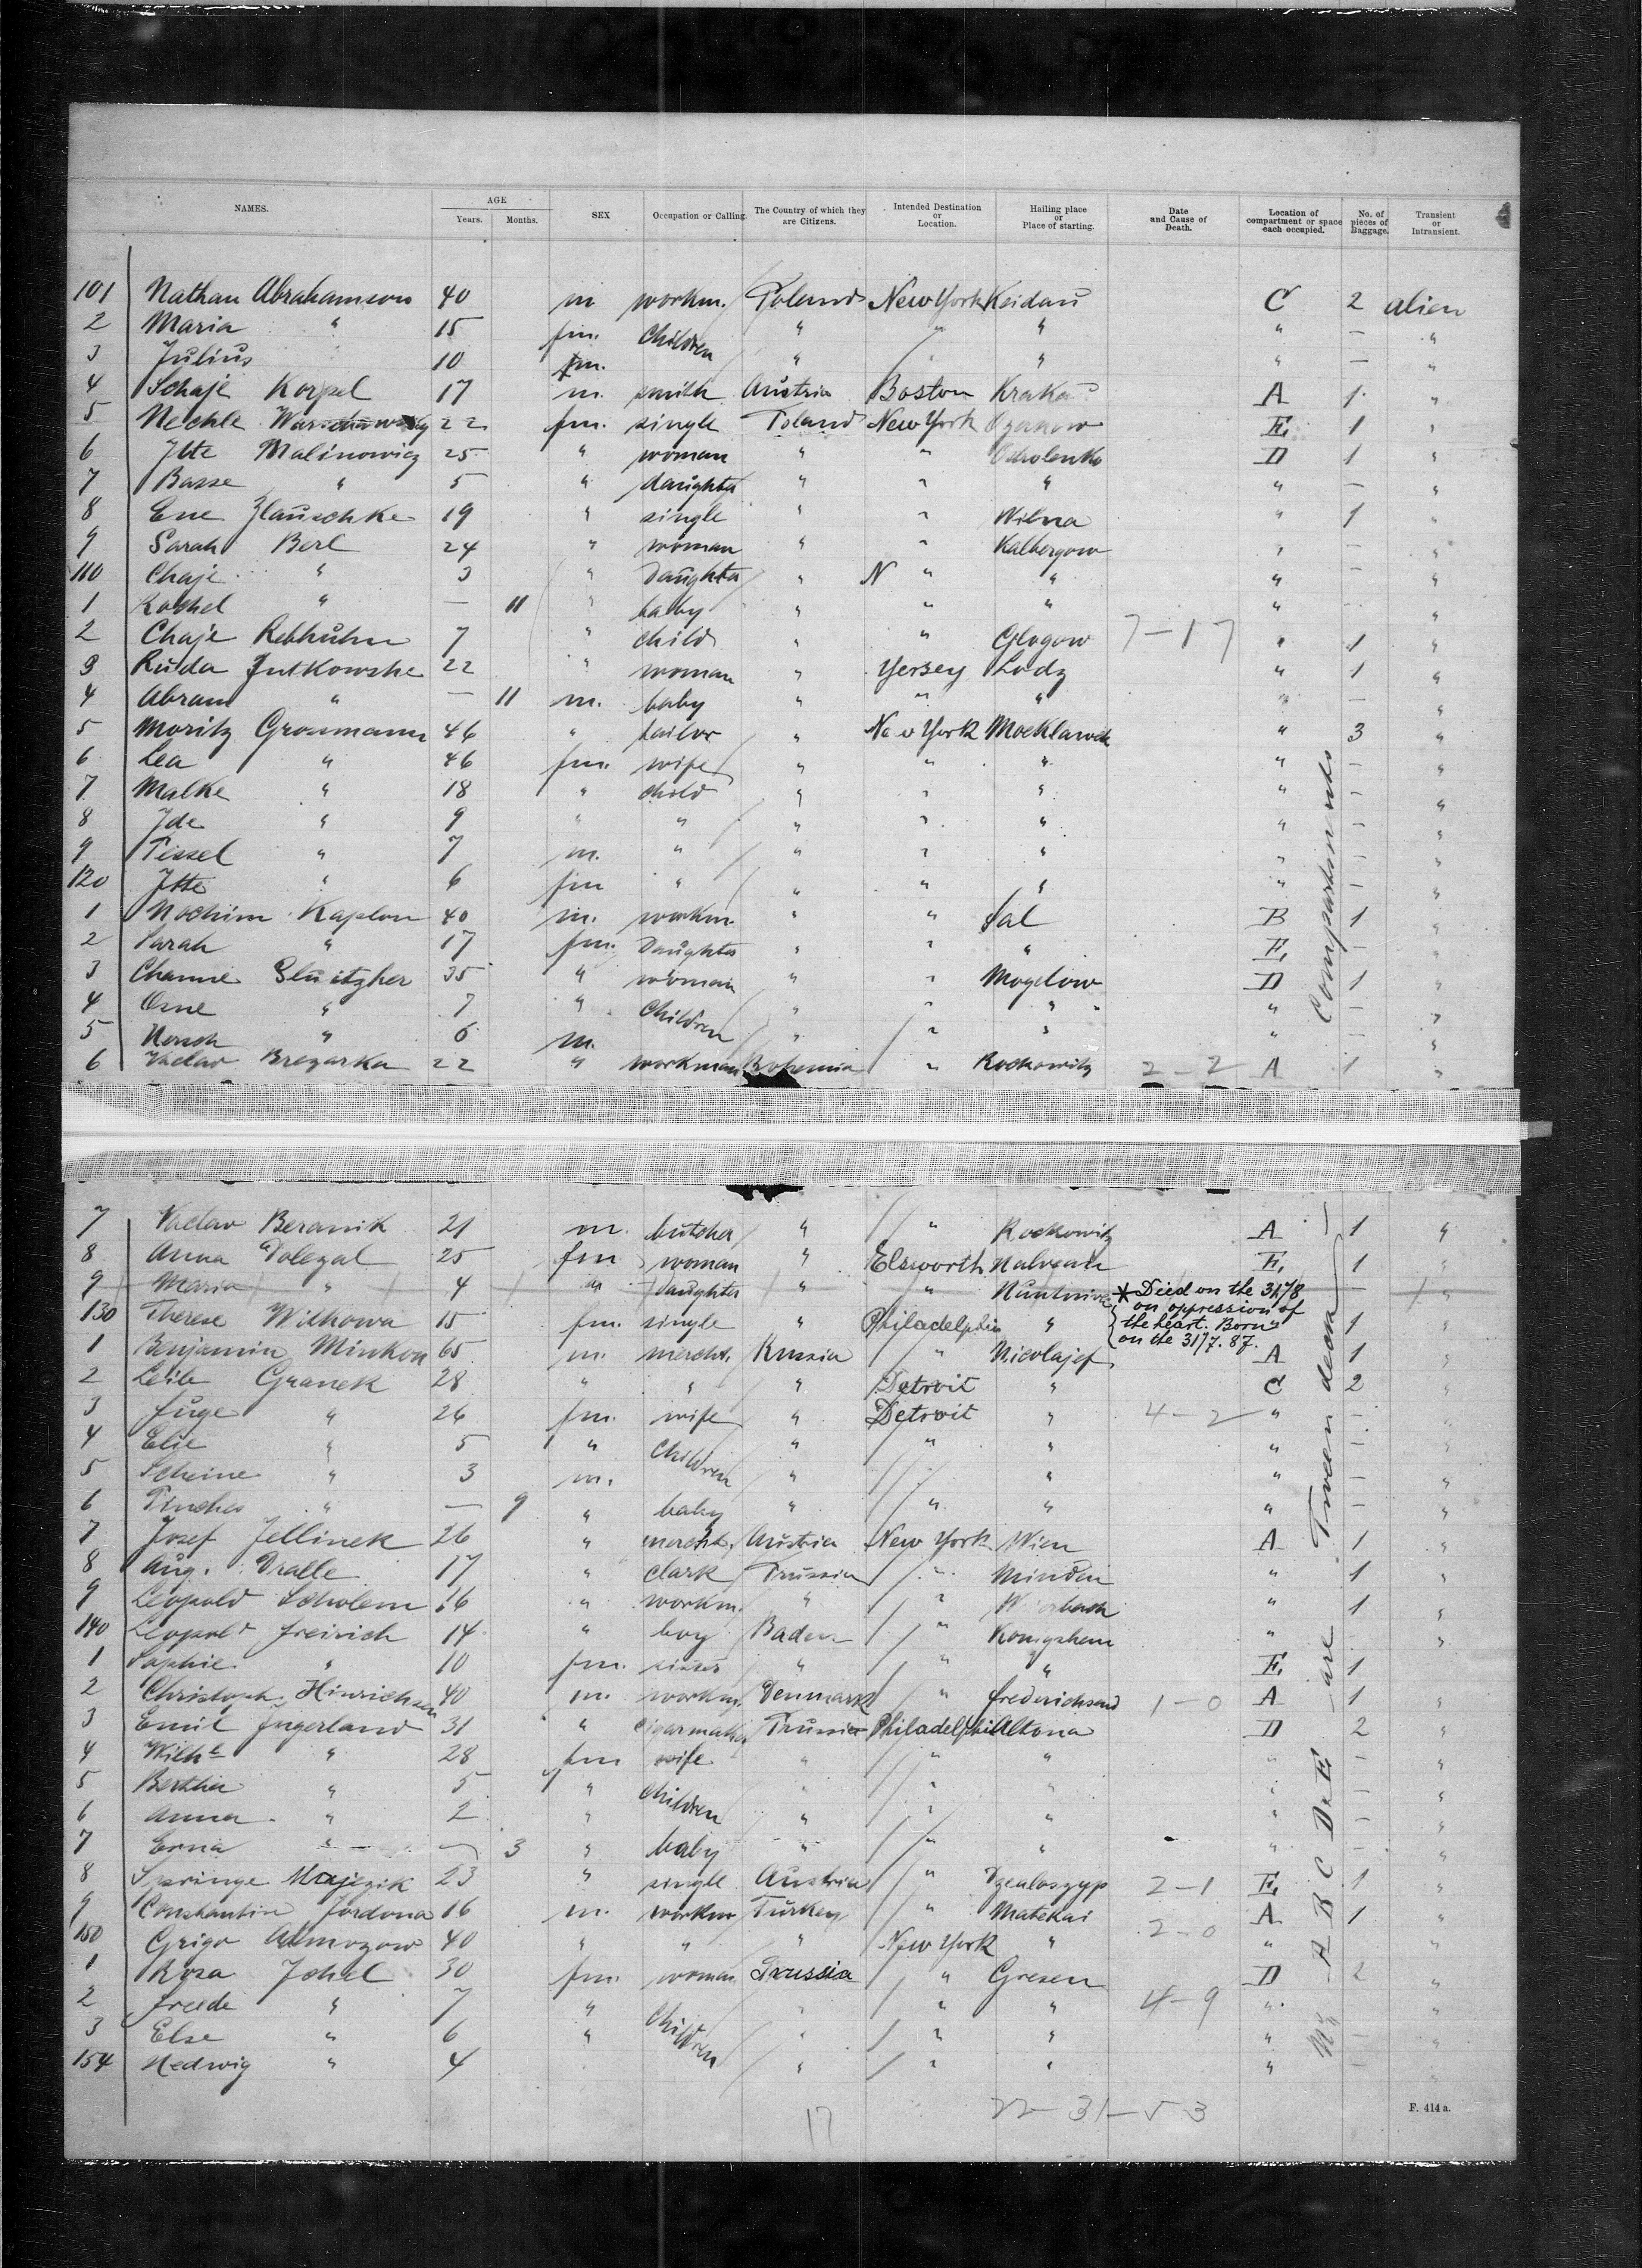 NAMES. AGE Years. Months. SEX Occupation or Calling. The Country of which they are Citizens. Intended Destination or Location. Hailing place or Place of starting. Date and Cause of Death. Location of compartment or space each occupied. No. of pieces of Baggage. Transient or Intransient.
101 Nathan Abrahamson 40 m workm. Poland New York Keidau C 2 alien
2 Maria " 15 fm. Children " " " " — "
3 Julius 10 m. " " " " — "
4 Schaje Korpel 17 m. smith Austria Boston Krakau A 1 "
5 Nechle 22 fm. single Poland New York E. 1 "
6 Itte Malinowicz 25 " woman " " D 1 "
7 Basse " 5 " daughter " " " " — "
8 Ene Zlauschke 19 " single " " Wilna " 1 "
9 Sarah Berl 24 " woman " " Kalbergow " — "
110 Chaje " 3 " Daughter " N " " " — "
1 Rochel " — 11 " baby " " " " — "
2 Chaje Rebhuhn 7 " child " " Glogow 7-17 " 1 "
3 Rulda Jutkowske 22 " woman " Yersey Lodz " 1 "
4 Abram " — 11 m. baby " " " " — "
5 Moritz Grossmann 46 " tailor " New York " 3 "
6 Lea " 46 fm. wife " " " " — "
7 Malke " 18 " child " " " " — "
8 Ide " 9 " " " " " " — "
9 Tissel " 7 m. " " " " " — "
120 Itte " 6 fm " " " " " — "
1 Nochim Kaplon 40 m. workm. " " Sal B 1 "
2 Sarah " 17 fm. Daughter " " " E. — "
3 Channe 35 " woman " " Mogelow D 1 "
4 " 7 " Children " " " " — "
5 Hersch " 6 m. " " " " — "
6 Vaclav Brezarka 22 " workman Bohemia " Rockowitz 2-2 A 1 "
7 Vaclav Beranik 21 m. butcher " " Rockowitz A 1 "
8 Anna Dolezal 25 fm woman " Elsworth E. 1 "
9 Maria " 4 " daughter " " * Died on the 31/8 — "
on oppression of
130 Therese Wilkowa 15 fm. single " Philadelphia " the heart. Born 1 "
on the 31/7. 87.
1 Benjamin Minkon 65 m. mercht. Russia " Nicolajef A 1 "
2 Leib Granek 28 " " " Detroit " C 2 "
3 Juge " 26 fm. wife " Detroit " 4-2 " — "
4 Elie " 5 " Children " " " " — "
5 Scheine " 3 m. " " " " — "
6 Pinches " — 9 " baby " " " " — "
7 Josef Jellinek 26 " mercht. Austria New York Wien A 1 "
8 Aug. Dralle 17 " clark Prussia " Minden " 1 "
9 Leopold Scholem 16 " workm. " " " 1 "
140 Leopold Freirich 14 " boy Baden " Konigshem " — "
1 Sophie " 10 fm. sister " " " E. 1
2 Christoph Hinrichsen 40 m. workm. Denmark " 1-0 A 1 "
3 Emil Jugerland 31 " cigarmaker Prussia Philadelphia Altona D 2 "
4 Wilhe " 28 fm wife " " " " — "
5 Bertha " 5 " Children " " " " — "
6 Anna " 2 " " " " " — "
7 Erna " — 3 " baby " " " " — "
8 Springe Majezik 23 " single Austria " 2-1 E. 1 "
9 Constantin Jordona 16 m. workm Turkey " Matekai A 1 "
150 Grigo 40 " " " New York " 2-0 " "
1 Rosa Jchel 30 fm. woman Prussia " Gresen D 2 "
2 Freede " 7 " Children " " " 4-9 " "
3 Else " 6 " " " " " — "
154 Hedwig " 4 " " " " — "
A B C D & E are Tween decks Compartments
17 22-31-53
F. 414 a.